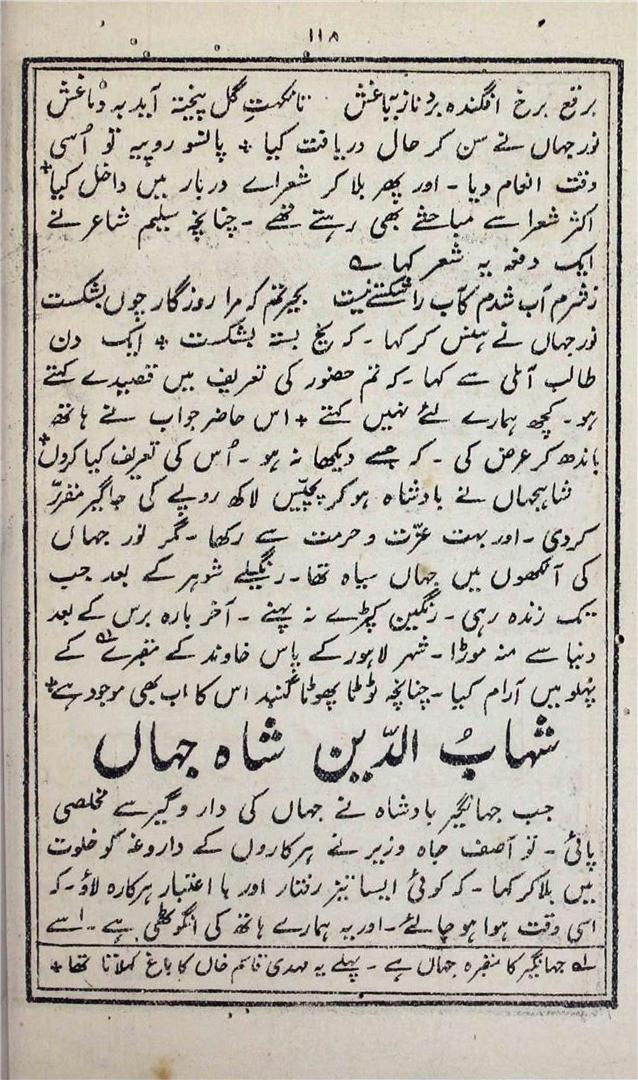 ۱۱۸
برقع برخ افگندہ برد ناز بباغش تا نکہتِ گل بیختہ آید بہ دماغش
نور جہاں نے سن کر حال دریافت کیا + پانسو روپیہ تو اُسی
وقت انعام دیا - اور پھر بلا کر شعراے دربار میں داخل کیا +
اکثر شعرا سے مباحثے بھی رہتے تھے - چنانچہ سلیم شاعر نے
ایک دفعہ یہ شعر کہا ؎
زشرم آب شدم کآب را شکستے نیست بحیرتم کہ مرا روزگار چوں بشکست
نور جہاں نے ہنس کر کہا - کہ یخ بستہ بشکست + ایک دن
طالب آملی سے کہا - کہ تم حضور کی تعریف میں قصیدے کہتے
ہو - کچھ ہمارے لئے نہیں کہتے + اس حاضر جواب نے ہاتھ
باندھ کر عرض کی - کہ جسے دیکھا نہ ہو - اُس کی تعریف کیا کروں +
شاہجہاں نے بادشاہ ہو کر پچیّس لاکھ روپے کی جاگیر مقرّر
کردی - اور بہت عزّت و حرمت سے رکھا - مگر نور جہاں
کی آنکھوں میں جہاں سیاہ تھا - رنگیلے شوہر کے بعد جب
تک زندہ رہی - رنگین کپڑے نہ پہنے - آخر بارہ برس کے بعد
دنیا سے منہ موڑا - شہر لاہور کے پاس خاوند کے مقبرے لہ کے
پہلو میں آرام کیا - چنانچہ ٹوٹا پھوٹا گنبد اس کا اب بھی موجود ہے +
شہابُ الدّین شاہ جہاں
جب جہانگیر بادشاہ نے جہاں کی دار و گیر سے مخلصی
پائی - تو آصف جاہ وزیر نے ہرکاروں کے داروغہ کو خلوت
میں بلا کر کہا - کہ کوئی ایسا تیز رفتار اور با اعتبار ہرکارہ لاؤ - کہ
اسی وقت ہوا ہو جائے - اور یہ ہمارے ہاتھ کی انگوٹھی ہے - اسے
لہ جہانگیر کا مقبرہ جہاں ہے - پہلے یہ مہدی قاسم خاں کا باغ کہلاتا تھا +